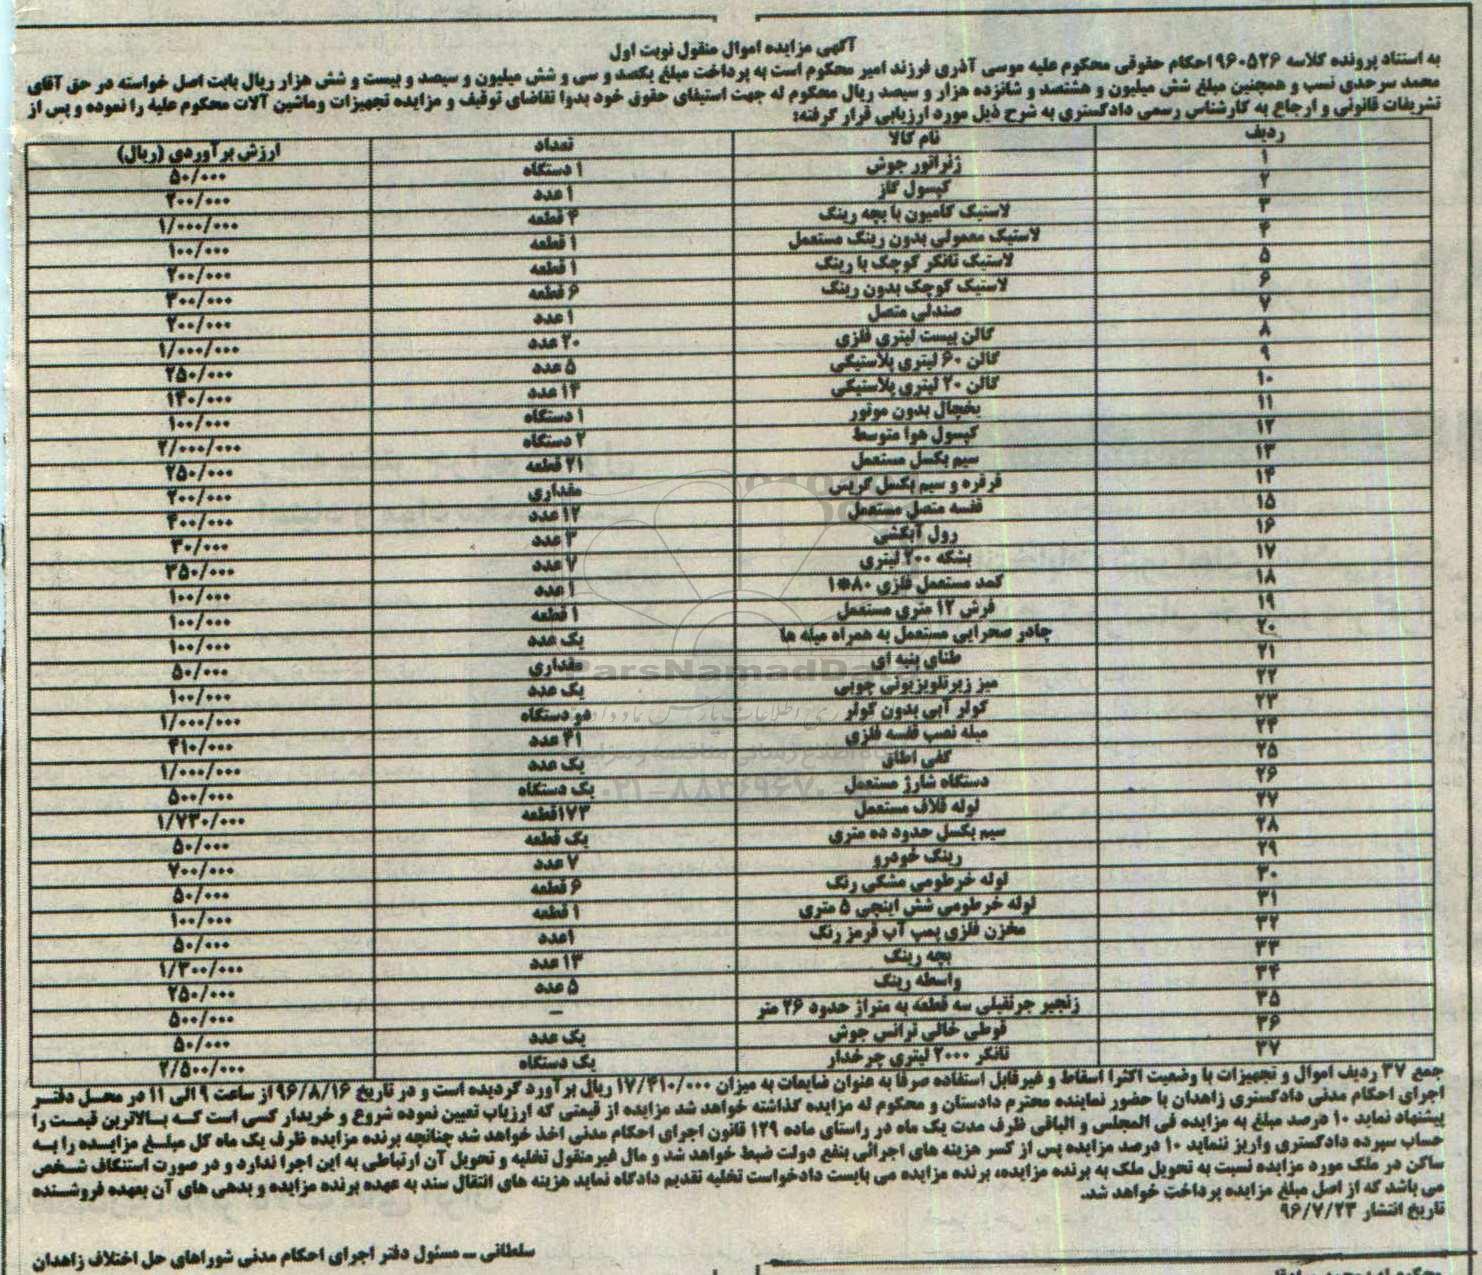 آگهی مزایده اموال منقول نوبت اول
به استناد پرونده کلاسه ۹۶۰۵۲۶ احکام حقوقی محکوم علیه موسی آذری فرزند امیر محکوم است به پرداخت مبلغ یکصد و سی و شش میلیون و سیصد و بیست و شش هزار ریال بابت اصل خواسته در حق آقای
محمد سرحدی نسب و همچنین مبلغ شش میلیون و هشتصد و شانزده هزار و سیصد ریال محکوم له جهت استیفای حقوق خود بدوا تقاضای توقیف و مزایده تجهیزات وماشین آلات محکوم علیه را نموده و پس از
تشریفات قانونی و ارجاع به کارشناس رسمی دادگستری به شرح ذیل مورد ارزیابی قرار گرفته:
ردیف نام کالا تعداد ارزش برآوردی (ریال)
۱ ژنراتور جوش ۱ دستگاه ۵۰/۰۰۰
۲ کپسول گاز ۱ عدد ۲۰۰/۰۰۰
۳ لاستیک کامیون با بچه رینگ ۴ قطعه ۱/۰۰۰/۰۰۰
۴ لاستیک معمولی بدون رینگ مستعمل ۱ قطعه ۱۰۰/۰۰۰
۵ لاستیک تانکر کوچک با رینگ ۱ قطعه ۲۰۰/۰۰۰
۶ لاستیک کوچک بدون رینگ ۶ قطعه ۳۰۰/۰۰۰
۷ صندلی متصل ۱ عدد ۲۰۰/۰۰۰
۸ گالن بیست لیتری فلزی ۲۰ عدد ۱/۰۰۰/۰۰۰
۹ گالن ۶۰ لیتری پلاستیکی ۵ عدد ۲۵۰/۰۰۰
۱۰ گالن ۲۰ لیتری پلاستیکی ۱۴ عدد ۱۴۰/۰۰۰
۱۱ یخچال بدون موتور ۱ دستگاه ۱۰۰/۰۰۰
۱۲ کپسول هوا متوسط ۲ دستگاه ۲/۰۰۰/۰۰۰
۱۳ سیم بکسل مستعمل ۲۱ قطعه ۲۵۰/۰۰۰
۱۴ قرقره و سیم بکسل گریس مقداری ۲۰۰/۰۰۰
۱۵ قفسه متصل مستعمل ۱۲ عدد ۴۰۰/۰۰۰
۱۶ رول آبکشی ۳ عدد ۳۰/۰۰۰
۱۷ بشکه ۲۰۰ لیتری ۷ عدد ۳۵۰/۰۰۰
۱۸ کمد مستعمل فلزی ۸۰*۱ ۱ عدد ۱۰۰/۰۰۰
۱۹ فرش ۱۲ متری مستعمل ۱ قطعه ۱۰۰/۰۰۰
۲۰ چادر صحرایی مستعمل به همراه میله ها یک عدد ۱۰۰/۰۰۰
۲۱ طنای پنبه ای مقداری ۵۰/۰۰۰
۲۲ میز زیرتلویزیونی چوبی یک عدد ۱۰۰/۰۰۰
۲۳ کولر آبی بدون کولر دو دستگاه ۱/۰۰۰/۰۰۰
۲۴ میله نصب قفسه فلزی ۴۱ عدد ۴۱۰/۰۰۰
۲۵ کفی اطاق یک عدد ۱/۰۰۰/۰۰۰
۲۶ دستگاه شارژ مستعمل یک دستگاه ۵۰۰/۰۰۰
۲۷ لوله قلاف مستعمل ۱۷۳قطعه ۱/۷۳۰/۰۰۰
۲۸ سیم بکسل حدود ده متری یک قطعه ۵۰/۰۰۰
۲۹ رینگ خودرو ۷ عدد ۷۰۰/۰۰۰
۳۰ لوله خرطومی مشکی رنگ ۶ قطعه ۵۰/۰۰۰
۳۱ لوله خرطومی شش اینچی ۵ متری ۱ قطعه ۱۰۰/۰۰۰
۳۲ مخزن فلزی پمپ آب قرمز رنگ ۱عدد ۵۰/۰۰۰
۳۳ بچه رینگ ۱۳ عدد ۱/۳۰۰/۰۰۰
۳۴ واسطه رینگ ۵ عدد ۲۵۰/۰۰۰
۳۵ زنجیر جرثقیلی سه قطعه به متراژ حدود ۲۶ متر – ۵۰۰/۰۰۰
۳۶ قوطی خالی ترانس جوش یک عدد ۵۰/۰۰۰
۳۷ تانکر ۲۰۰۰ لیتری چرخدار یک دستگاه ۲/۵۰۰/۰۰۰
جمع ۳۷ ردیف اموال و تجهیزات با وضعیت اکثرا اسقاط و غیرقابل استفاده صرفا به عنوان ضایعات به میزان ۱۷/۴۱۰/۰۰۰ ریال برآورد گردیده است و در تاریخ ۹۶/۸/۱۶ از ساعت ۹ الی ۱۱ در محل دفتر
اجرای احکام مدنی دادگستری زاهدان با حضور نماینده محترم دادستان و محکوم له مزایده گذاشته خواهد شد مزایده از قیمتی که ارزیاب تعیین نموده شروع و خریدار کسی است که بالاترین قیمت را
پیشنهاد نماید ۱۰ درصد مبلغ به مزایده فی المجلس و الباقی ظرف مدت یک ماه در راستای ماده ۱۲۹ قانون اجرای احکام مدنی اخذ خواهد شد چنانچه برنده مزایده ظرف یک ماه کل مبلغ مزایده را به
حساب سپرده دادگستری واریز ننماید ۱۰ درصد مزایده پس از کسر هزینه های اجرائی بنفع دولت ضبط خواهد شد و مال غیرمنقول تخلیه و تحویل آن ارتباطی به این اجرا ندارد و در صورت استنکاف شخص
ساکن در ملک مورد مزایده نسبت به تحویل ملک به برنده مزایده، برنده مزایده می بایست دادخواست تخلیه تقدیم دادگاه نماید هزینه های انتقال سند به عهده برنده مزایده و بدهی های آن بعهده فروشنده
می باشد که از اصل مبلغ مزایده پرداخت خواهد شد.
تاریخ انتشار ۹۶/۷/۲۳
سلطانی – مسئول دفتر اجرای احکام مدنی شوراهای حل اختلاف زاهدان
ParsNamadDa
۰۲۱-۸۸۳۴۹۶۷۰